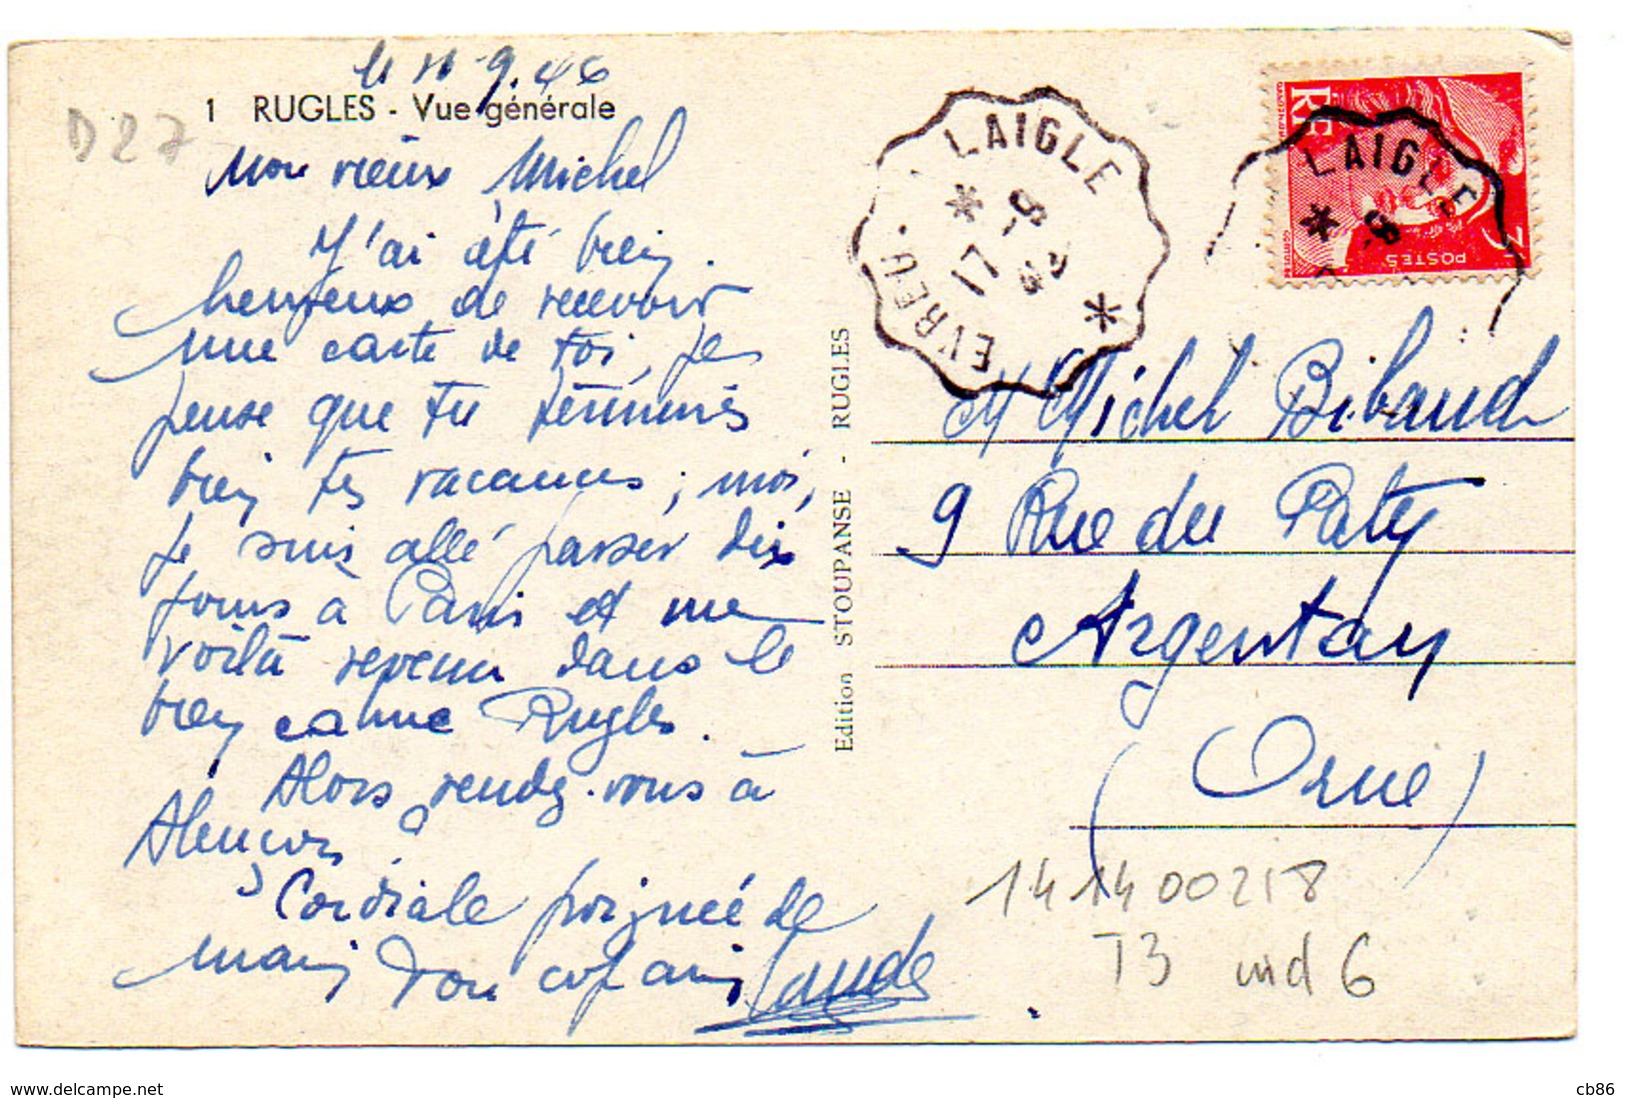 le 11-9.46
1 RUGLES - Vue générale
D27
Mon vieux Michel
J'ai été bien
heureux de recevoir
une carte de toi, je
pense que tu termines
bien tes vacances ; moi,
je suis allé passer dix
jours à Paris et me
voilà revenu dans le
bien calme Rugles.
Alors rendez-vous à
Alençon
Cordiale poignée de
main Ton copain Claude
Edition STOUPANSE - RUGLES
LAIGLE
EVREU
17 -9
LAIGLE
RF
POSTES
3F
M Michel Bibaud
9 Rue du Paty
Argentan
(Orne)
1414002158
T3 ind 6
www.delcampe.net
cb86